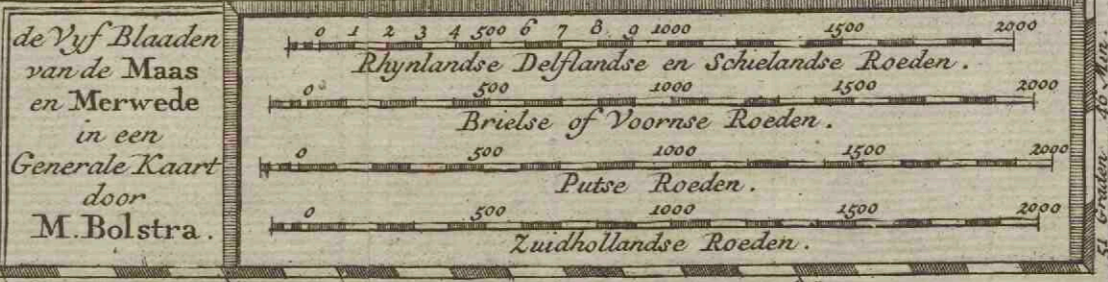 de Vyf Blaaden
van de Maas
en Merwede
in een
Generale Kaart
door
M. Bolstra.
0 1 2 3 4 500 6 7 8 9 1000 1500 2000
Rhynlandse Delflandse en Schielandse Roeden.
0 500 1000 1500 2000
Brielse of Voornse Roeden.
0 500 1000 1500 2000
Putse Roeden.
0 500 1000 1500 2000
Zuidhollandse Roeden.
51 Graden 40 Min.